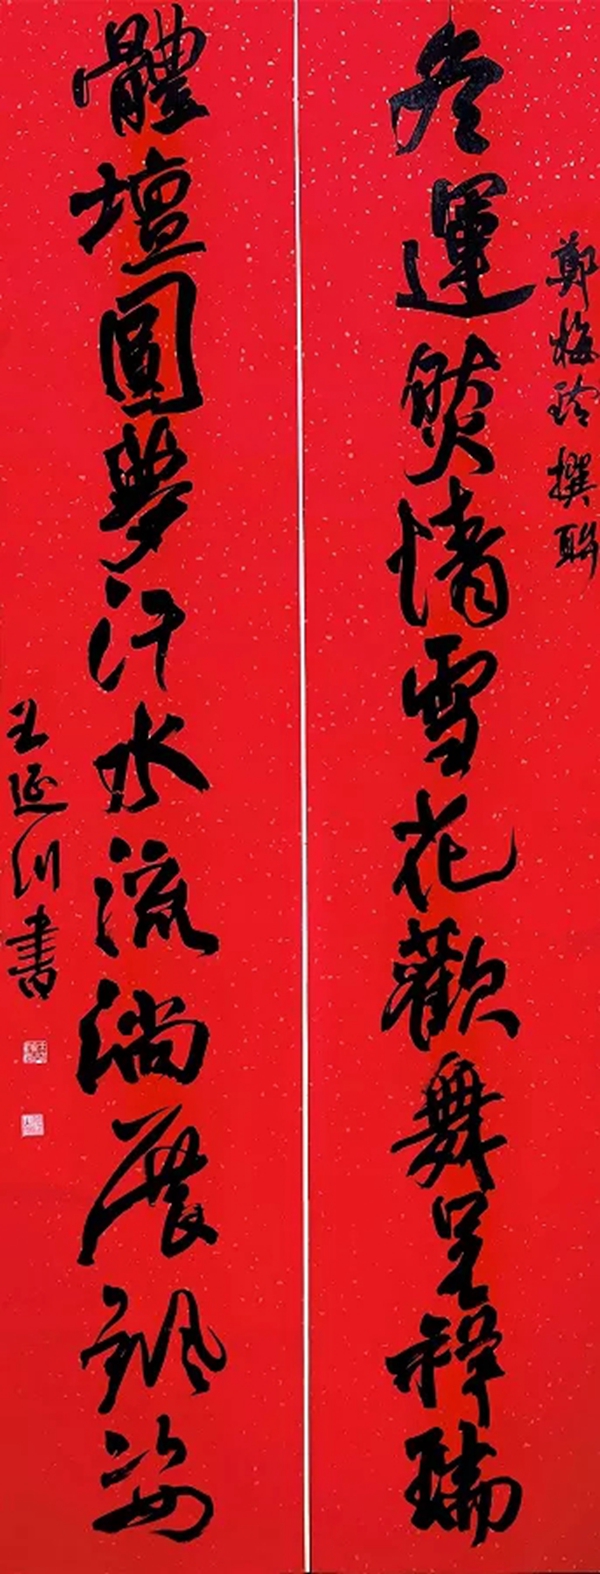 鄭梅玲撰聯
冬運燃情雪花歡舞呈祥瑞
體壇圓夢汗水流淌展颯姿
王延訓書